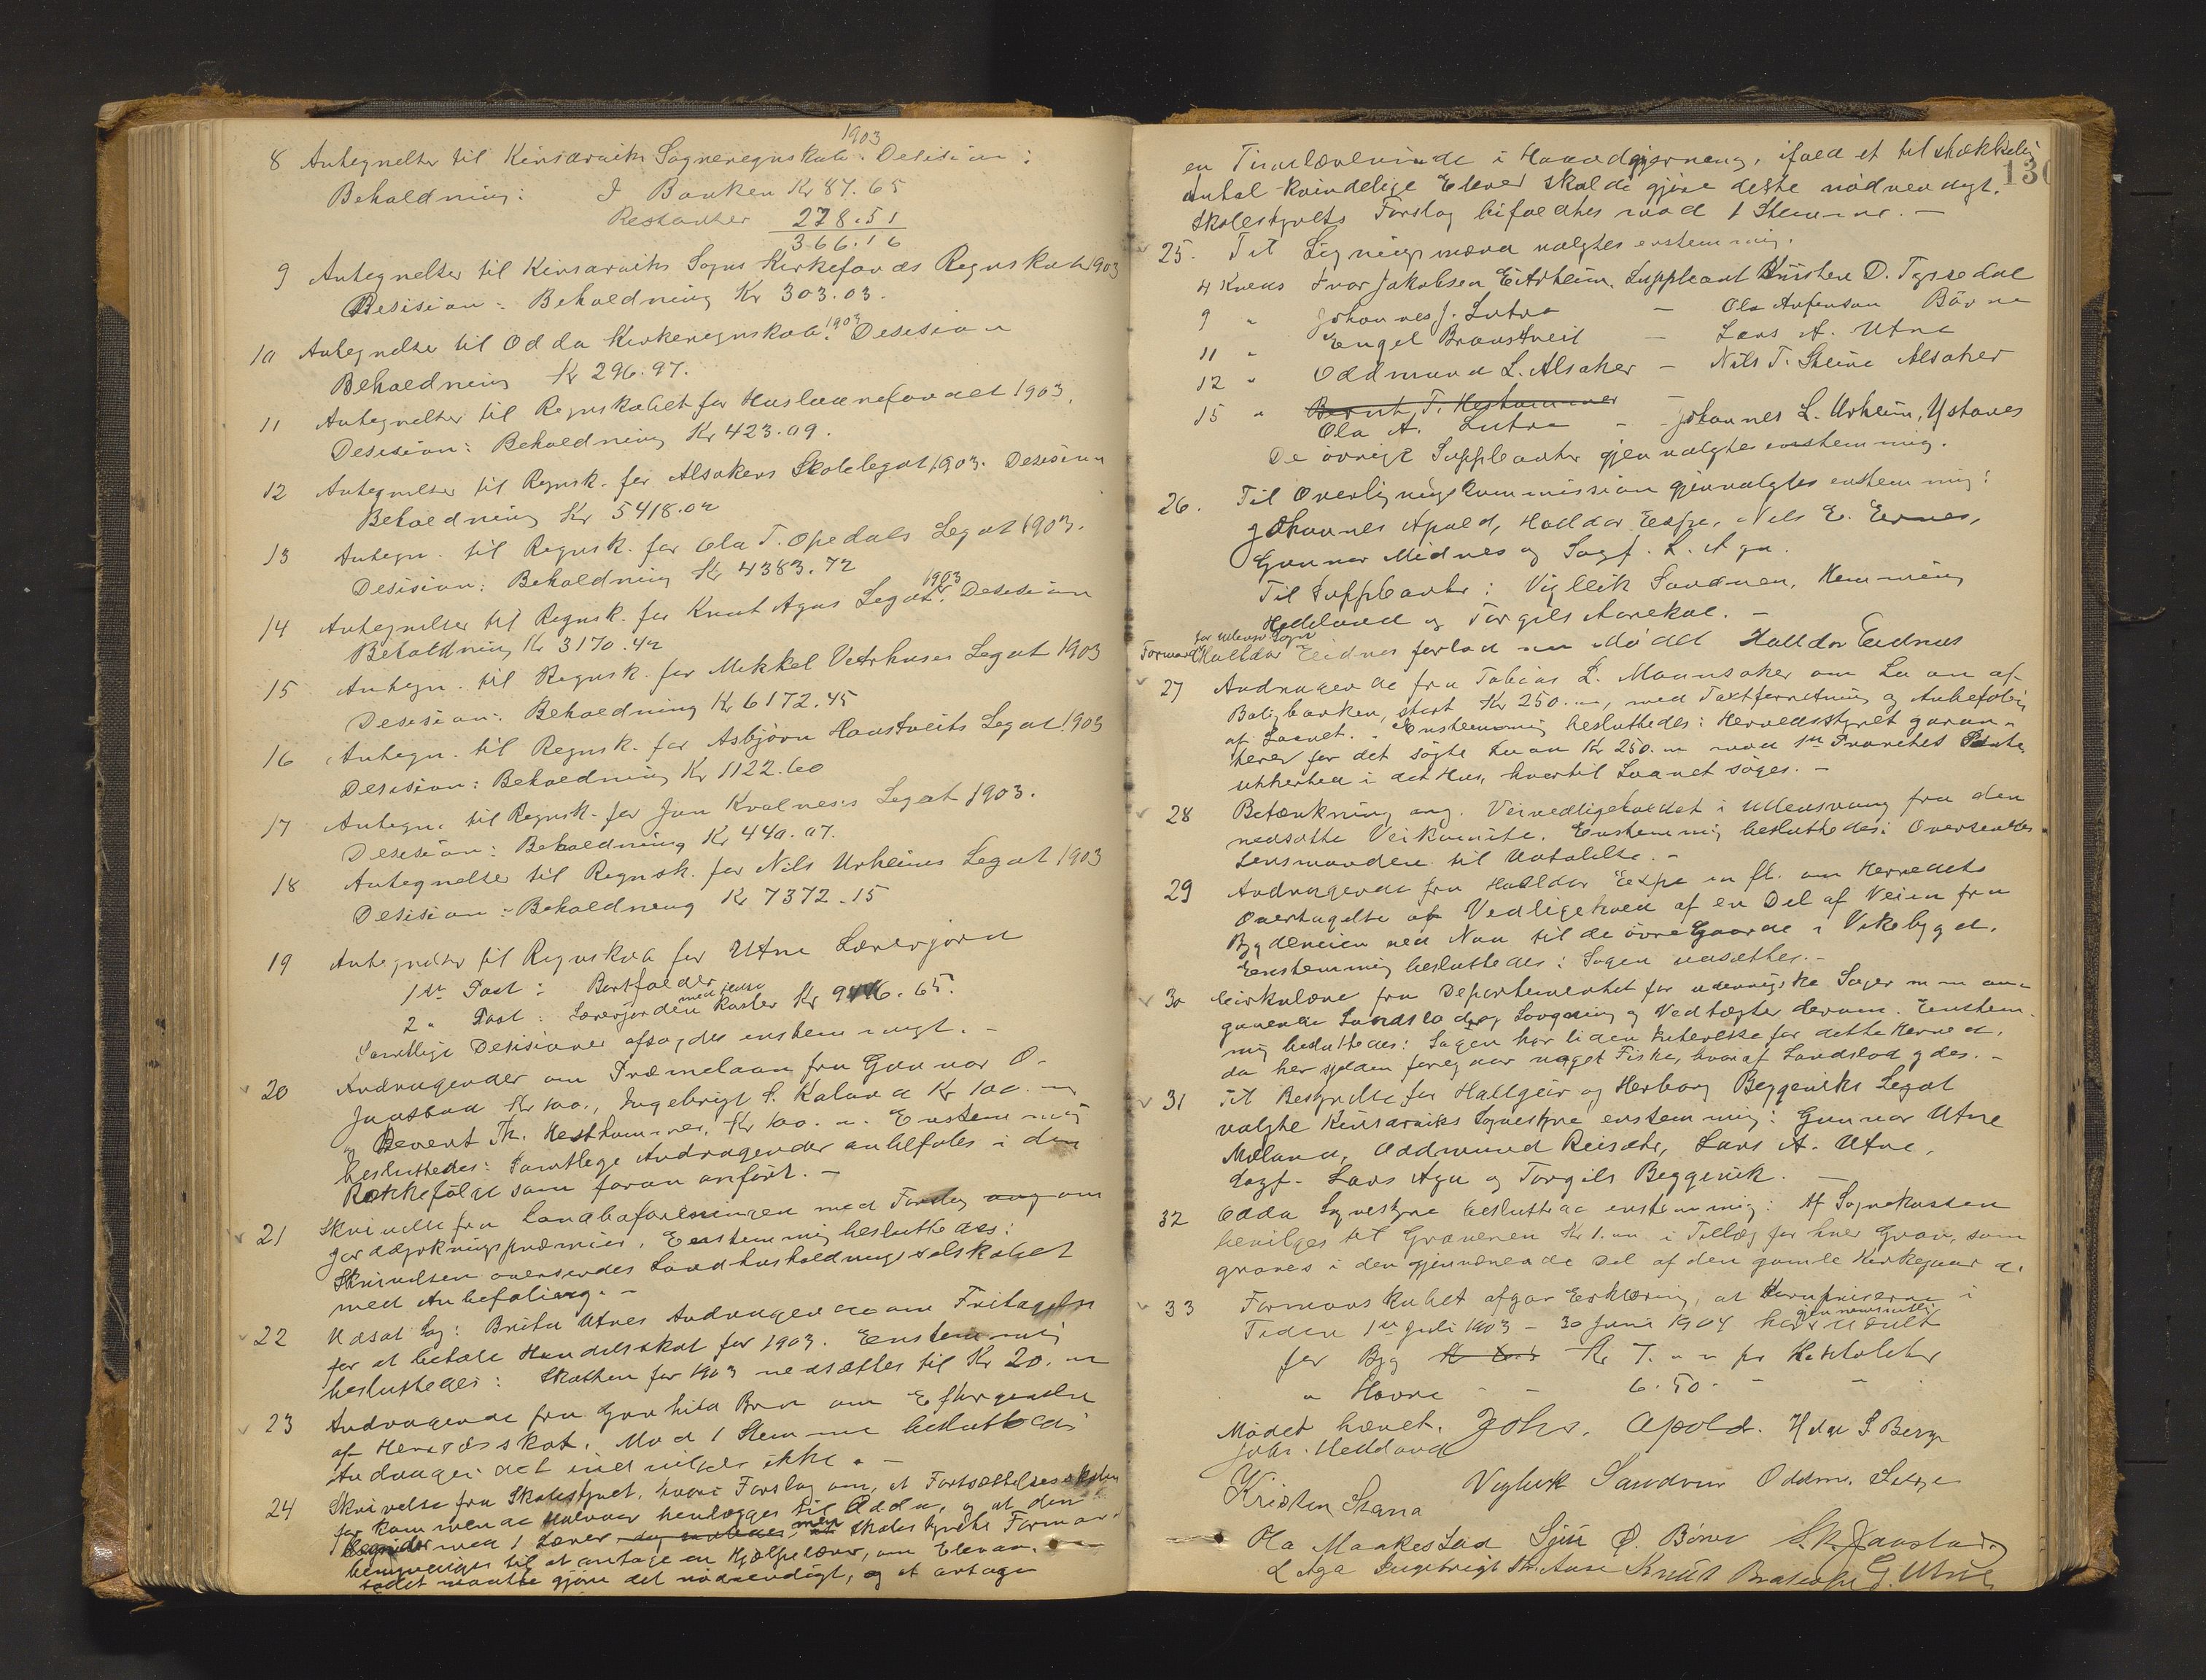 1903
8 Antegnelser til Kinsarviks Sogneregnskab. Desision:
Behaldning: I Banken Kr 87.65
Restantser 278.51
366.16
9 Antegnelser til Kinsarviks Sogns Kirkefonds Regnskab 1903
Desision: Behaldning Kr 303.03.
10 Antegnelser til Odda Kirkeregnskab 1903. Desision
Behaldning Kr 296.97.
11 Antegnelser til Regnskabet for Huslaanefondet 1903.
Desision: Behaldning Kr 423.09.
12 Antegnelser til Regnsk. for Alsakers Skolelegat 1903. Desision
Behaldning Kr 5418.02
13 Antegn. til Regnsk. for Ola T. Opedals Legat 1903.
Desision: Behaldning Kr 4383.72
14 Antegnelser til Regnsk. for Knut Agas Legat 1903. Desision
Behaldning Kr 3170.42
15 Antegn. til Regnsk. for Mikkel Vetrhuses Legat 1903
Desision: Behaldning Kr 6172.45
16 Antegn. til Regnsk. for Asbjörn Haustveits Legat 1903
Desision: Behaldning Kr 1122.60
17 Antegn. til Regnsk. for Jon Kvalnes's Legat 1903.
Desision: Behaldning Kr 440.07.
18 Antegnelser til Regnsk. for Nils Urheims Legat 1903
Desision: Behaldning Kr 7372.15
19 Antegnelser til Regnskab for Utne Lærerjord
1ste Post: Bortfalder
2 " Post: Lærerjorden med Huse koster Kr 9446.65.
Samtlige Desisioner afsagdes enstemmigt. -
20 Andragender om Præmielaan fra Gunnar O.
Jaastad Kr 100., Ingebrigt S. Kaland Kr 100.
og Bevent Th. Hesthammer, Kr 100. Enstemmig
besluttedes: Samtlige Andragender anbefales i den
Rækkefölge som foran anfört. -
21 Skrivelse fra Landboforeningen med Forslag ang om
jorddyrkningspræmier. Enstemmig besluttedes:
Skrivelsen oversendes Landhusholdningsselskabet
med Anbefaling. -
22 Udsat Sag: Brita Utnes Andragende om Fritagelse
for at betale Handelsskat for 1903. Enstemmig
besluttedes: Skatten for 1903 nedsættes til Kr 20.
23 Andragende fra Gunhild Bra om Eftergivelse
af Herredsskat. Mod 1 Stemme besluttedes
Andragendet indvilges ikke. -
24 Skrivelse fra Skolestyret, hvori Forslag om, at Fortsættelsesskolen
for kommende Halvaar henlægges til Odda, og at den
begynder med 1 Lærer men at Skolestyrets Formand
bemyndiges til at antage en Hjælpelærer, om Elevan-
tallet maatte gjöre det nödvendigt, og at antage
130
en Timelærerinde i Haandgjerning, ifald et tilstrækkelig
Antal kvindelige Elever skulde gjöre dette nödvendigt.
Skolestyrets Forslag bifaldtes mod 1 Stemme. -
25. Til Ligningsmænd valgtes enstemmig.
4 Kreds Ivar Jakobsen Eitrheim, Suppleant Kristen D. Tyssedal
9 " Johannes J. Lutro - Ola Arfinsen Börve
11 " Engel Braastveit - Lars A. Utne
12 " Oddmund L. Alsaker - Nils T. Steine Alsaker
15 " Bernt T. Hesthammer -
Ola A. Lutro - Johannes L. Urheim, Ystanes
De övrige Suppleanter gjenvalgtes enstemmig.
26. Til Overligningskommission gjenvalgtes enstemmig:
Johannes Apold, Halldor Espe, Nils E. Ernes,
Gunnar Midnes og Sagf. L. Aga.
Til Suppleanter: Viglleik Sandven, Hemming
Hedeland og Torgils Aarekol. -
for Ullensv. Sogn
Formand Halldor Eidnes forlod nu Mödet Halldor Eidnes
27 Andragende fra Tobias L. Mannsaker om Laan af
Boligbanken, stort Kr 250.-, med Taxtforretning og Anbefaling
af Laanet. - Enstemmig besluttedes: Herredsstyret garan-
terer for det sögte Laan Kr 250.- mod 1ste Prioritets Pante-
sikkerhed i det Hus, hvortil Laanet söges. -
28 Betænkning ang. Veivedligeholdet i Ullensvang fra den
nedsatte Veikomite. Enstemmig besluttedes: Oversendes
Lensmanden til Udtalelse. -
29 Andragende fra Halldor Espe m fl. om Herredets
Overtagelse af Vedligehold af en Del af Veien fra
Bygdeveien ved Naa til de övre Gaarde i Vikebygd.
Enstemmig besluttedes: Sagen udsættes. -
30 Cirkulære fra Departementet for udenrigske Sager m m an-
gaaende Landslodd og Lovgivning og Vedtægter derom. Enstem-
mig besluttedes: Sagen har liden Interesse for dette Herred,
da her sjelden foregaar noget Fiske, hvoraf Landslod ydes. -
31 Til Bestyrelse for Hallgeir og Herborg Beggeviks Legat
valgte Kinsarviks Sognestyre enstemmig: Gunnar Utne
Mæland, Oddmund Reisæter, Lars A. Utne,
Sagf. Lars Aga og Torgils Beggevik. -
32 Odda Sognestyre besluttede enstemmig: Af Sognekassen
bevilges til Graveren Kr 1.- i Tillæg for hver Grav, som
graves i den gjenværende Del af den gamle Kirkegaard.
33 Formandskabet afgav Erklæring, at Kornpriserne i
Tiden 1ste Juli 1903 - 30 Juni 1904 har gjennemsnitlig været
for Byg Kr 7.- pr Hektoliter
" Havre - - 6.50. - -
Mödet hævet. Johs. Apold. Helge S. Berge
Johs. Hedeland
Kristen Skara Vigleik Sandven Oddm. Lutro
Ola Maakestad Sjur Ø. Börve S. K. Jaastad
L Aga Ingebrigt Aase Knut G. Utne